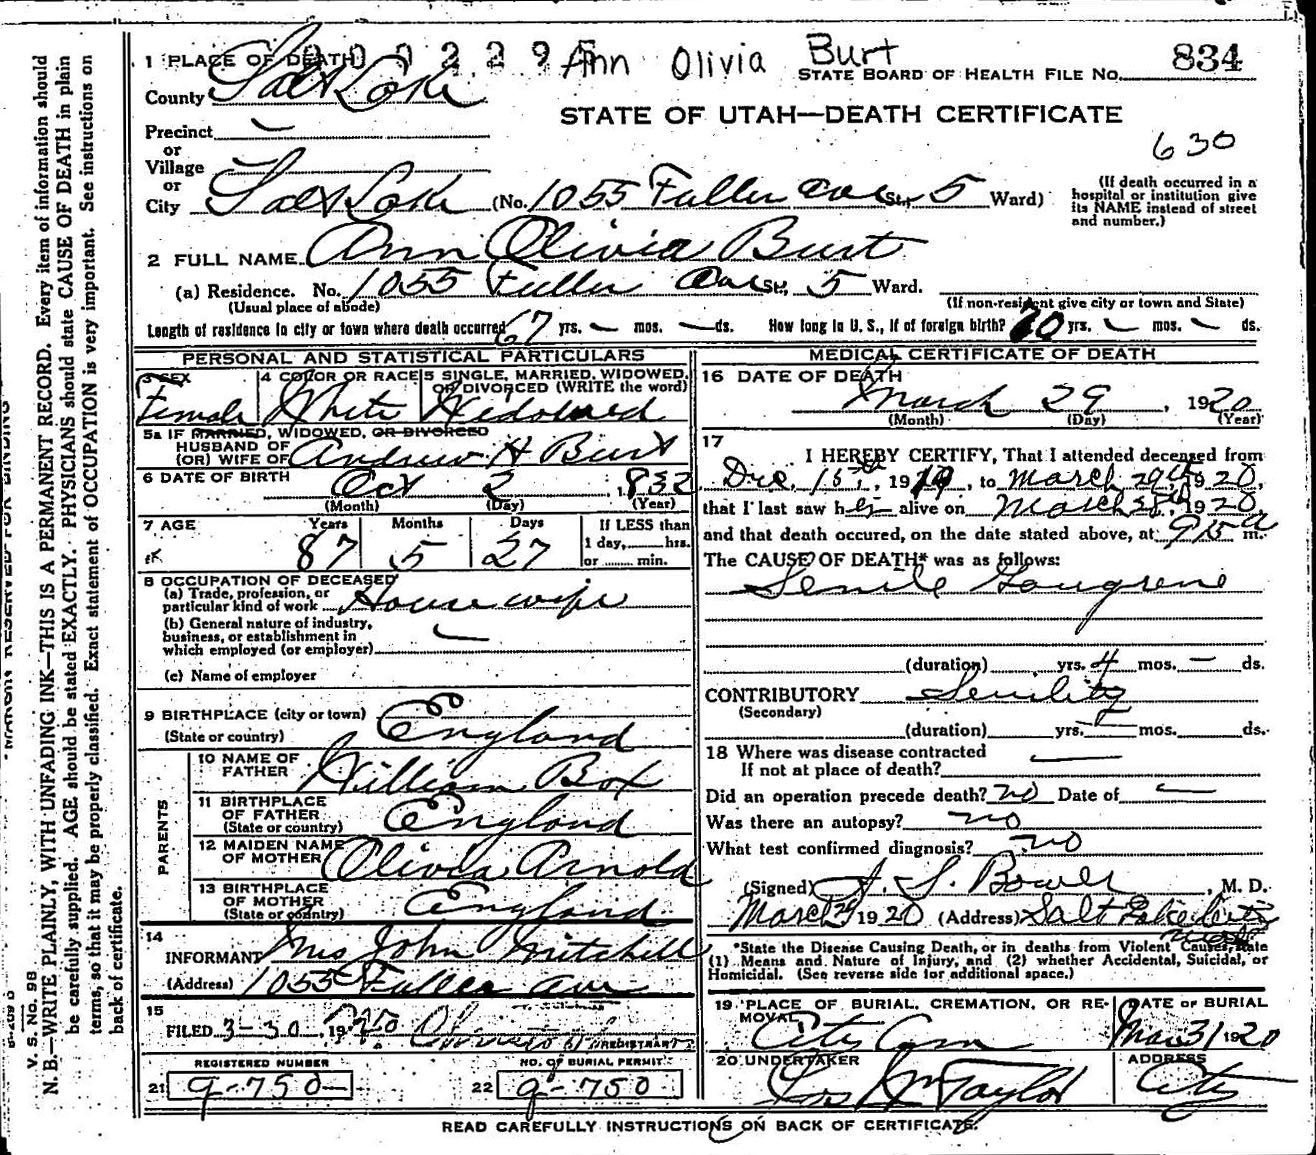 Ann Olivia Burt
1 PLACE OF DEATH
STATE BOARD OF HEALTH FILE No. 834
County Salt Lake
STATE OF UTAH—DEATH CERTIFICATE
Precinct
or
Village
or
630
City Salt Lake (No. 1055 Fuller Ave St., 5 Ward)
(If death occurred in a hospital or institution give its NAME instead of street and number.)
2 FULL NAME Ann Olivia Burt
(a) Residence. No. 1055 Fuller Ave St., 5 Ward.
(Usual place of abode) (If non-resident give city or town and State)
Length of residence in city or town where death occurred 67 yrs. mos. ds. How long in U. S., if of foreign birth? 70 yrs. mos. ds.
PERSONAL AND STATISTICAL PARTICULARS
3 SEX Female
4 COLOR OR RACE White
5 SINGLE, MARRIED, WIDOWED, OR DIVORCED (WRITE the word) Widowed
5a IF MARRIED, WIDOWED, OR DIVORCED
HUSBAND OF
(OR) WIFE OF Andrew H Burt
6 DATE OF BIRTH Oct 2, 1832
(Month) (Day) (Year)
7 AGE Years 87 Months 5 Days 27
If LESS than
1 day, hrs.
or min.
8 OCCUPATION OF DECEASED
(a) Trade, profession, or
particular kind of work Housewife
(b) General nature of industry,
business, or establishment in
which employed (or employer)
(c) Name of employer
9 BIRTHPLACE (city or town)
(State or country) England
PARENTS
10 NAME OF
FATHER William Box
11 BIRTHPLACE
OF FATHER
(State or country) England
12 MAIDEN NAME
OF MOTHER Olivia Arnold
13 BIRTHPLACE
OF MOTHER
(State or country) England
14
INFORMANT Mrs John Mitchell
(Address) 1055 Fuller Ave
15
FILED 3-30, 1920
REGISTRAR
REGISTERED NUMBER
21 g-750
NO. of BURIAL PERMIT
22 g-750
MEDICAL CERTIFICATE OF DEATH
16 DATE OF DEATH
March 29, 1920
(Month) (Day) (Year)
17
I HEREBY CERTIFY, That I attended deceased from
Dec. 15th, 1919, to March 29th, 1920,
that I last saw her alive on March 28th, 1920
and that death occured, on the date stated above, at 915 a m.
The CAUSE OF DEATH* was as follows:
Senile Gangrene
(duration) yrs. 4 mos. – ds.
CONTRIBUTORY Senility
(Secondary)
(duration) yrs. mos. ds.
18 Where was disease contracted
If not at place of death?
Did an operation precede death? no Date of
Was there an autopsy? no
What test confirmed diagnosis? no
(Signed) J. S. Bower, M. D.
March 29 1920 (Address) Salt Lake City
*State the Disease Causing Death, or in deaths from Violent Causes, state
(1) Means and Nature of Injury, and (2) whether Accidental, Suicidal, or
Homicidal. (See reverse side for additional space.)
19 PLACE OF BURIAL, CREMATION, OR REMOVAL
City Cem
DATE OF BURIAL
Mar 31 1920
20 UNDERTAKER
Jos Wm Taylor
ADDRESS
City
READ CAREFULLY INSTRUCTIONS ON BACK OF CERTIFICATE.
V. S. No. 98
N. B.—WRITE PLAINLY, WITH UNFADING INK—THIS IS A PERMANENT RECORD. Every item of information should
be carefully supplied. AGE should be stated EXACTLY. PHYSICIANS should state CAUSE OF DEATH in plain
terms, so that it may be properly classified. Exact statement of OCCUPATION is very important. See instructions on
back of certificate.